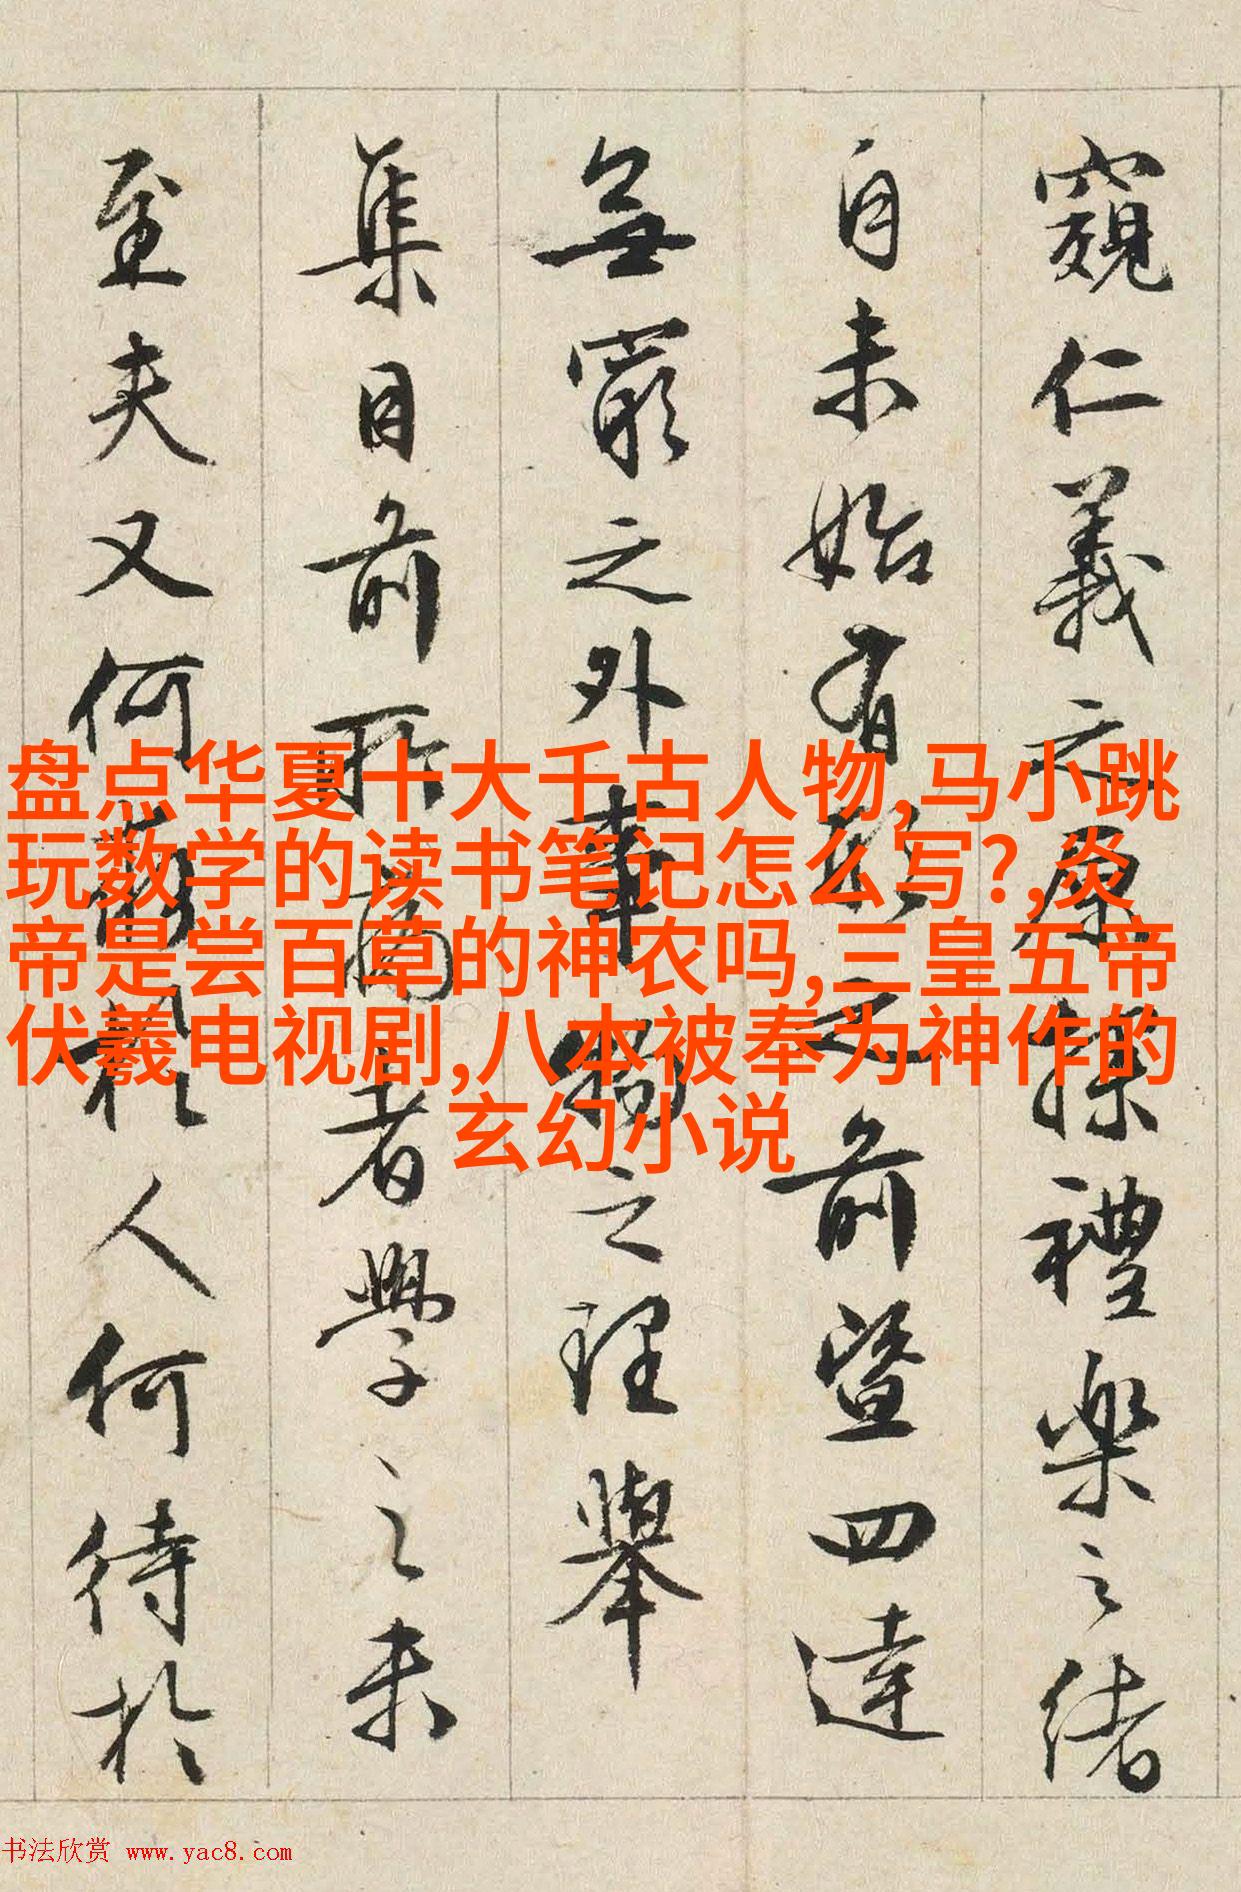 窺仁義之原操禮樂之緒
自未始有形之前暨四達
無窮之外事物之理舉
集目前所為者學之未
至夫又何求於人何待於
盘点华夏十大千古人物,马小跳
玩数学的读书笔记怎么写?,炎
帝是尝百草的神农吗,三皇五帝
伏羲电视剧,八本被奉为神作的
玄幻小说
书法欣赏 www.yac8.com